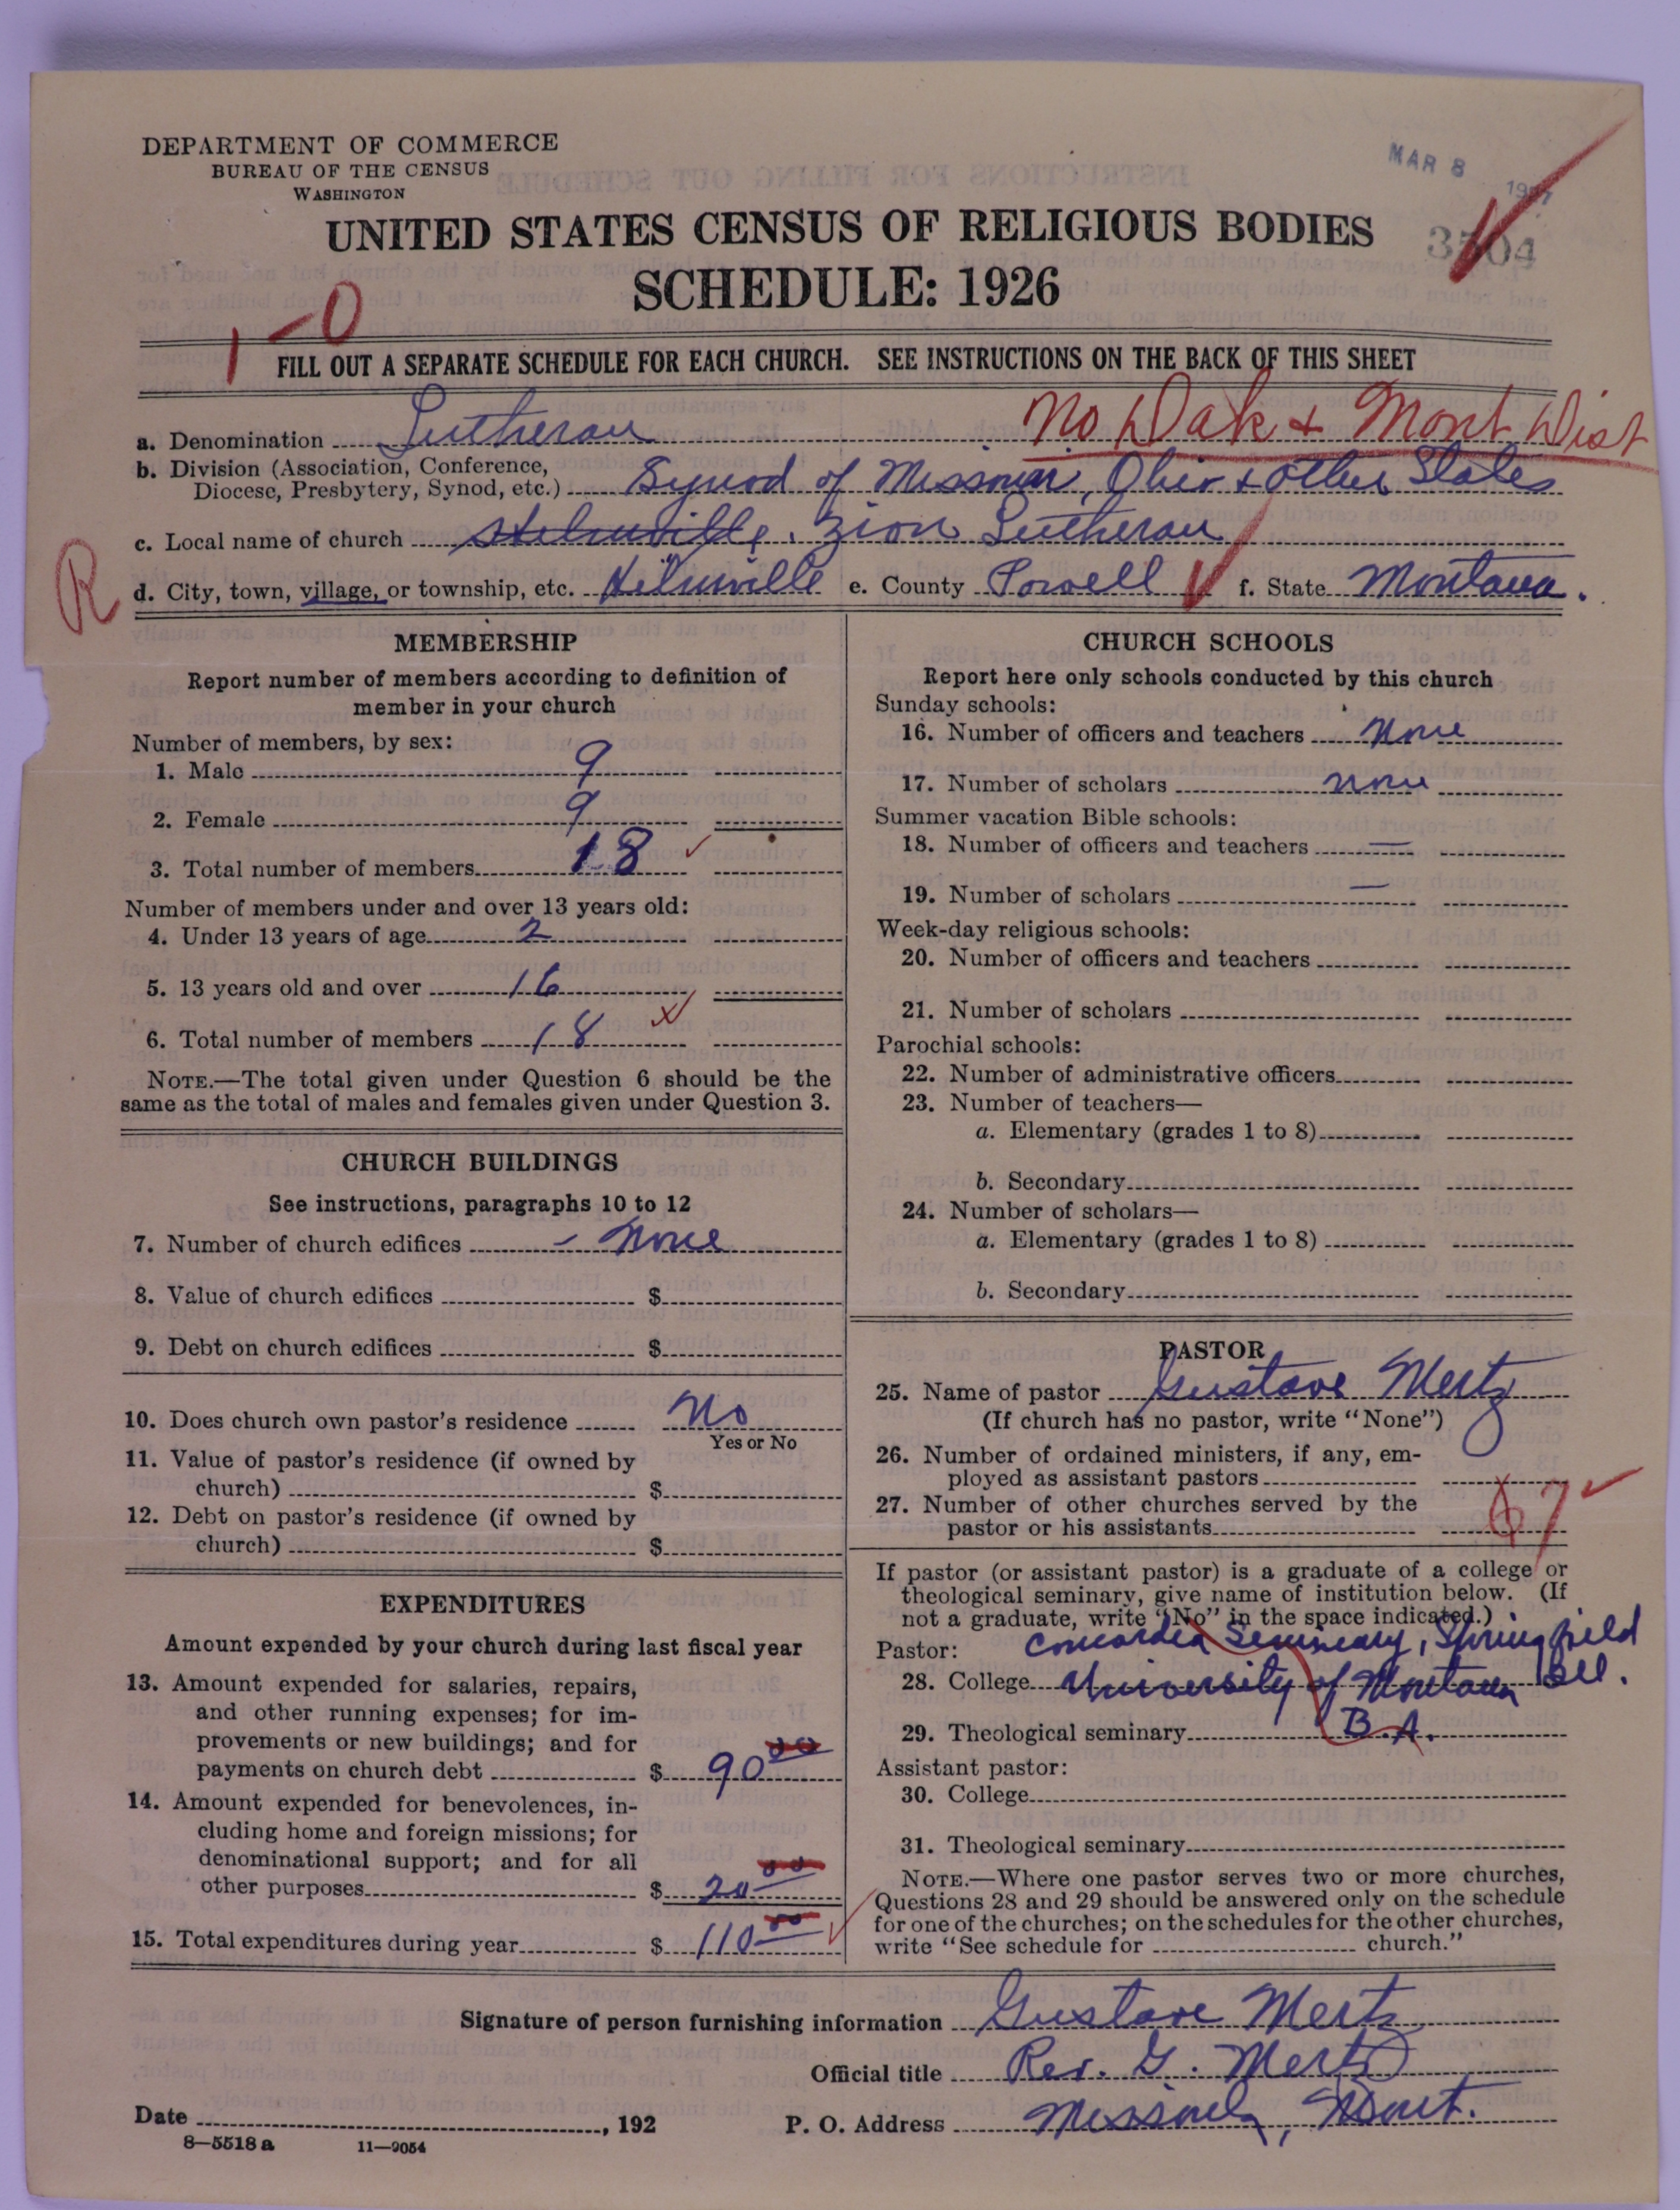 DEPARTMENT OF COMMERCE
BUREAU OF THE CENSUS
WASHINGTON
MAR 8 1927
UNITED STATES CENSUS OF RELIGIOUS BODIES
SCHEDULE: 1926
1-0
FILL OUT A SEPARATE SCHEDULE FOR EACH CHURCH. SEE INSTRUCTIONS ON THE BACK OF THIS SHEET
No Dak + Mont Dist
a. Denomination Lutheran
b. Division (Association, Conference,
Diocese, Presbytery, Synod, etc.) Synod of Missouri, Ohio + other States
c. Local name of church Helmville, Zion Lutheran
R
d. City, town, village, or township, etc. Helmville e. County Powell f. State Montana.
MEMBERSHIP
Report number of members according to definition of
member in your church
Number of members, by sex:
1. Male 9
2. Female 9
3. Total number of members 18
Number of members under and over 13 years old:
4. Under 13 years of age 2
5. 13 years old and over 16
6. Total number of members 18
NOTE.—The total given under Question 6 should be the
same as the total of males and females given under Question 3.
CHURCH BUILDINGS
See instructions, paragraphs 10 to 12
7. Number of church edifices - None
8. Value of church edifices $
9. Debt on church edifices $
10. Does church own pastor's residence No
Yes or No
11. Value of pastor's residence (if owned by
church) $
12. Debt on pastor's residence (if owned by
church) $
EXPENDITURES
Amount expended by your church during last fiscal year
13. Amount expended for salaries, repairs,
and other running expenses; for im-
provements or new buildings; and for
payments on church debt $ 90 00
14. Amount expended for benevolences, in-
cluding home and foreign missions; for
denominational support; and for all
other purposes $ 20 00
15. Total expenditures during year $ 110 00
CHURCH SCHOOLS
Report here only schools conducted by this church
Sunday schools:
16. Number of officers and teachers None
17. Number of scholars none
Summer vacation Bible schools:
18. Number of officers and teachers —
19. Number of scholars —
Week-day religious schools:
20. Number of officers and teachers
21. Number of scholars
Parochial schools:
22. Number of administrative officers
23. Number of teachers—
a. Elementary (grades 1 to 8)
b. Secondary
24. Number of scholars—
a. Elementary (grades 1 to 8)
b. Secondary
PASTOR
25. Name of pastor Gustave Mertz
(If church has no pastor, write "None")
26. Number of ordained ministers, if any, em-
ployed as assistant pastors
27. Number of other churches served by the
pastor or his assistants 7
If pastor (or assistant pastor) is a graduate of a college or
theological seminary, give name of institution below. (If
not a graduate, write "No" in the space indicated.)
Pastor: Concordia Seminary, Springfield
Ill.
28. College University of Montana
29. Theological seminary B.A.
Assistant pastor:
30. College
31. Theological seminary
NOTE.—Where one pastor serves two or more churches,
Questions 28 and 29 should be answered only on the schedule
for one of the churches; on the schedules for the other churches,
write "See schedule for church."
Signature of person furnishing information Gustave Mertz
Official title Rev. G. Mertz
Date , 192 P. O. Address Missoula, Mont.
8—5518 a 11—9054